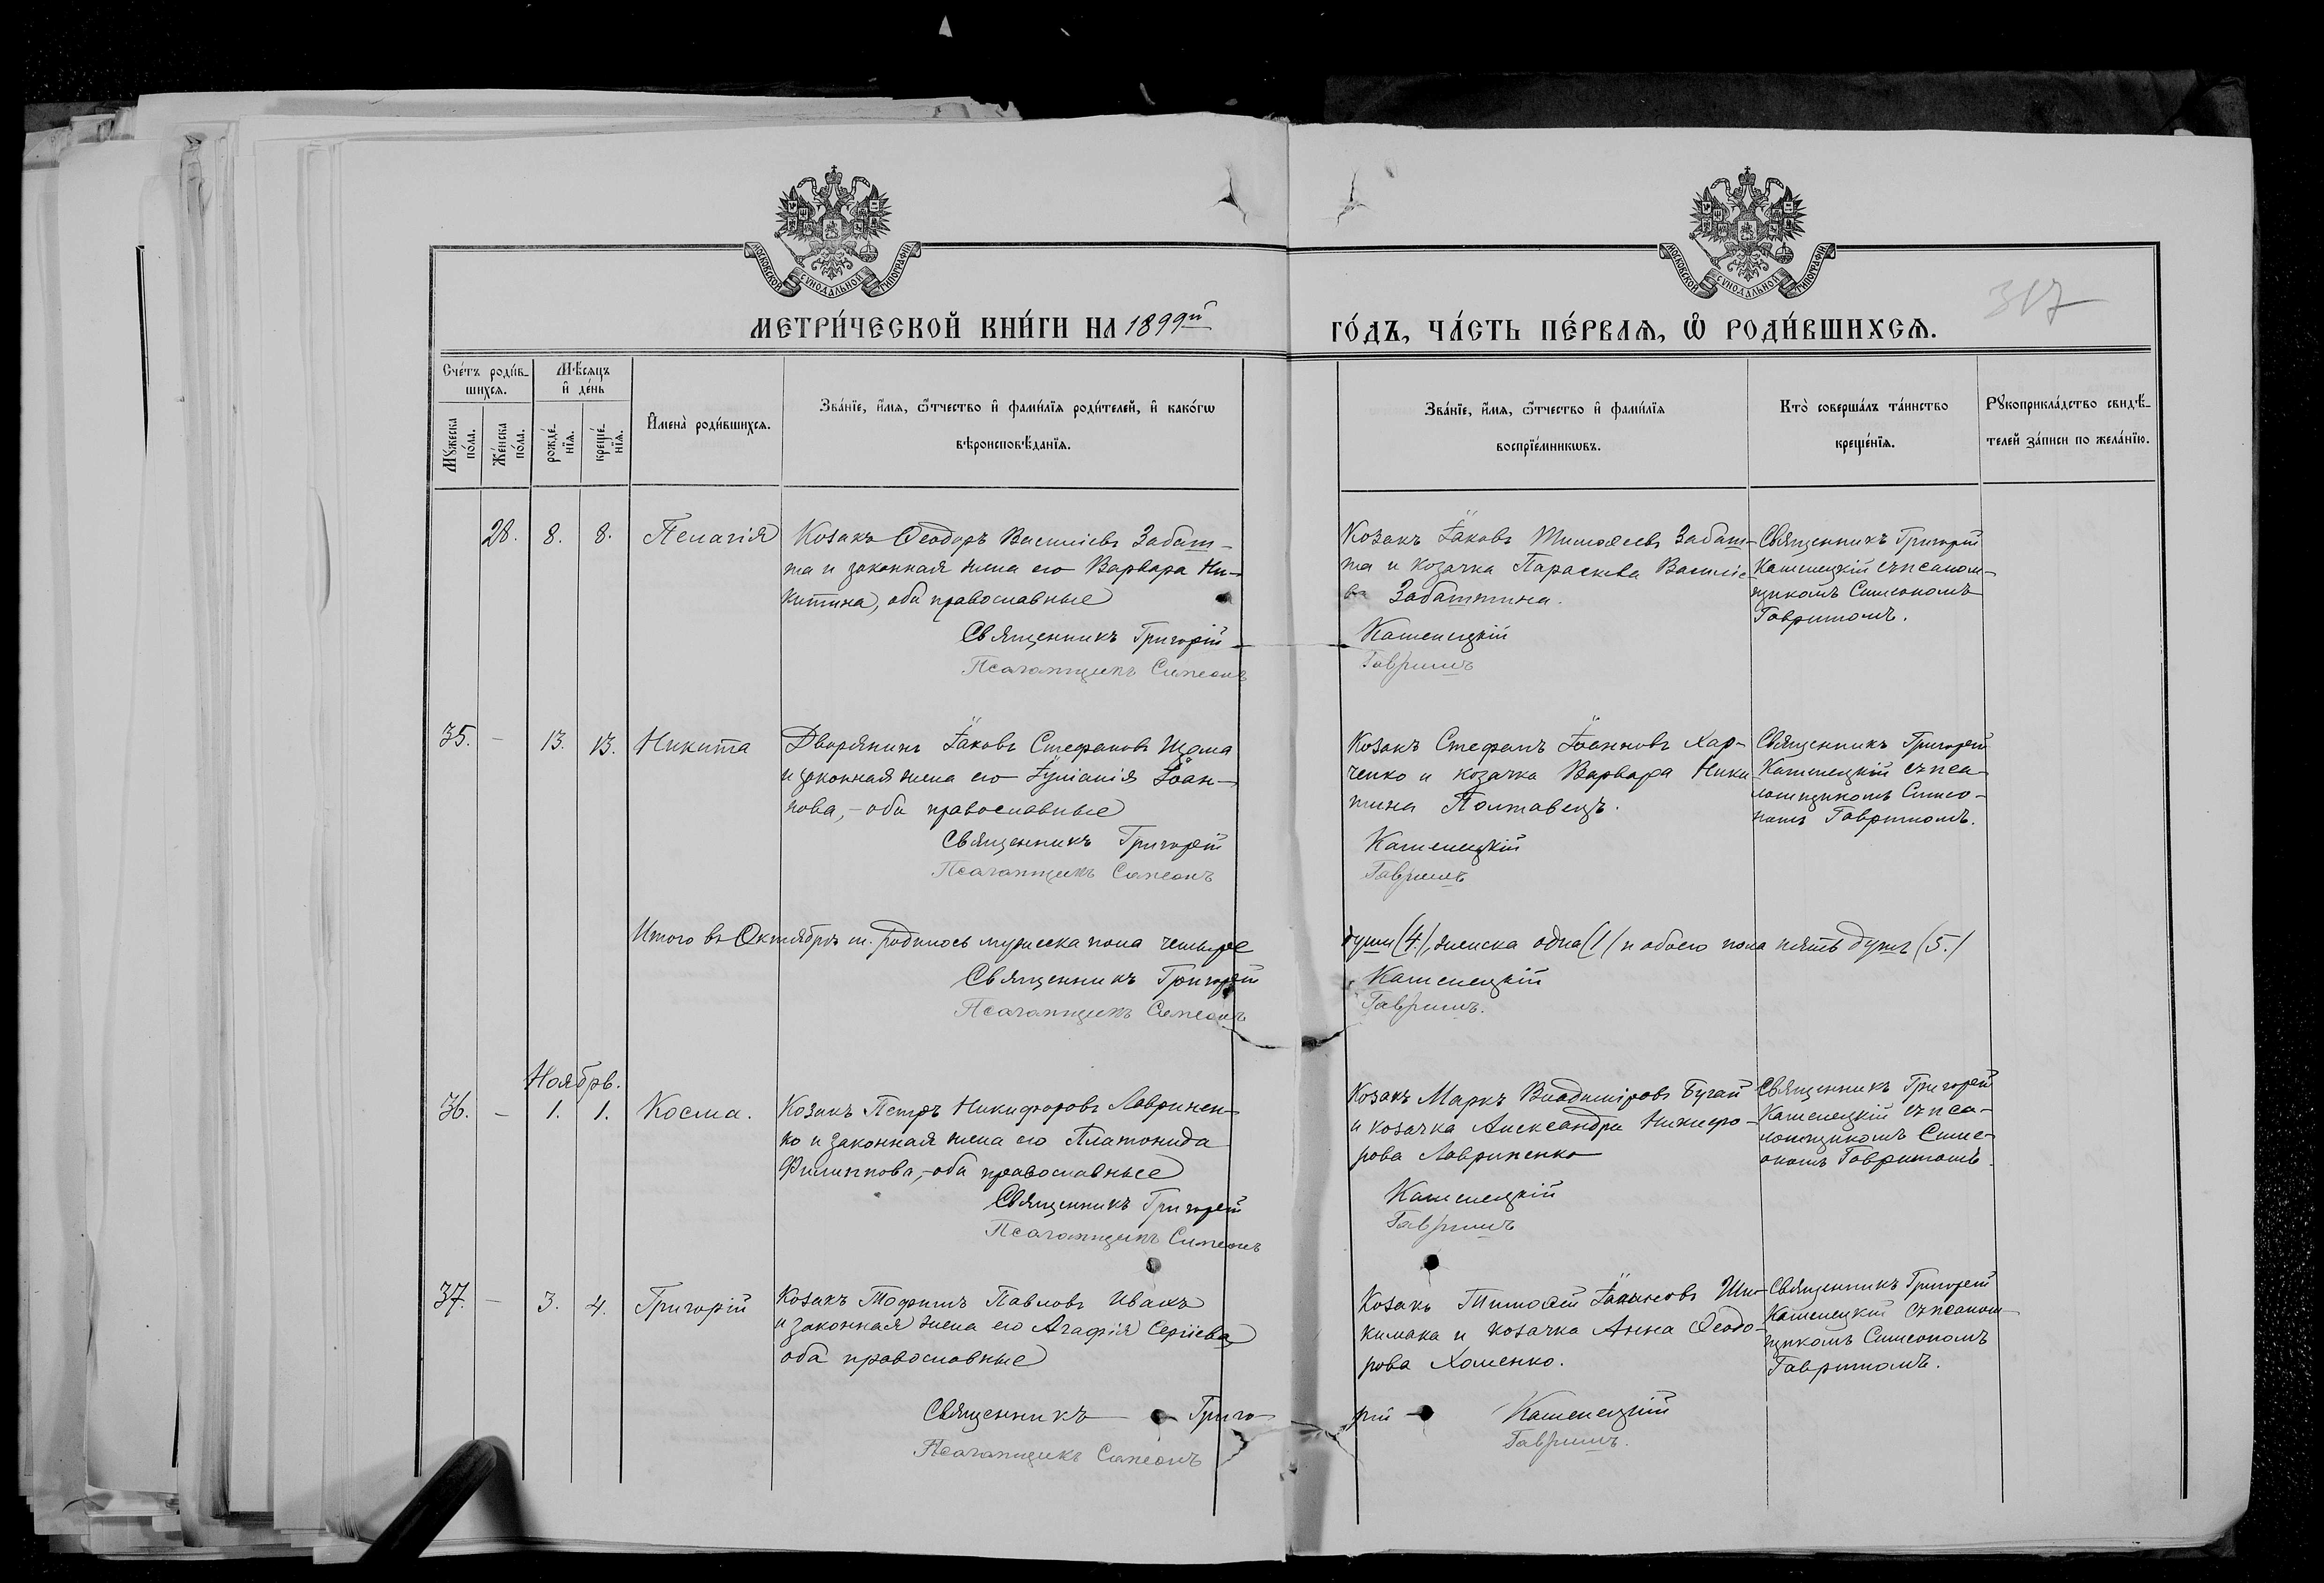 МОСКОВСКОЙ СѴНОДАЛЬНОЙ ТИПОГРАФІИ
МОСКОВСКОЙ СѴНОДАЛЬНОЙ ТИПОГРАФІИ
317
МЕТРИ́ЧЕСКОЙ КНИ́ГИ НА 1899й
ГО́ДЪ, ЧА́СТЬ ПЕ́РВАЯ, Ѡ҆ РОДИ́ВШИХСЯ.
Сче́тъ роди́в-
шихся.
Мѣ́сяцъ
и҆ де́нь
Мꙋ́жеска по́ла.
Же́нска по́ла.
рожде́-нїя.
креще́-нїя.
И҆мена̀ роди́вшихся.
Зва́нїе, и҆́мя, ѻ҆́тчество и҆ фами́лїя роди́телей, и҆ како́гѡ
вѣроисповѣ́данїя.
Зва́нїе, и҆́мя, ѻ҆́тчество и҆ фами́лїя
воспрїе́мникѡвъ.
Кто̀ соверша́лъ та́инство
креще́нїя.
Рꙋкоприкла́дство свидѣ́-
телей за́писи по жела́нїю.
28. 8. 8. Пелагія Козакъ Ѳеодоръ Василіевъ Забаш-
та и законная жена его Варвара Ни-
китина, оба православные
Священникъ Григорій
Псаломщикъ Симеонъ
Козакъ Іаковъ Тимоѳеевъ Забаш-
та и козачка Параскева Василіе-
ва Забаштина.
Каменецкій
Гавришъ
Священникъ Григорій
Каменецкій съ псалом-
щикомъ Симеономъ
Гавришомъ.
35. — 13. 13. Никита Дворянинъ Іаковъ Стефановъ
и законная жена его Іуліанія Іоан-
нова, - оба православные
Священникъ Григорій
Псаломщикъ Симеонъ
Козакъ Стефанъ Іоанновъ Хар-
ченко и козачка Варвара Ники-
тина Полтавецъ.
Каменецкій
Гавришъ
Священникъ Григорій
Каменецкій съ пса-
ломщикомъ Симео-
номъ Гавришомъ.
Итого въ Октябрѣ м. родилось мужеска пола четыре
души (4.), женска одна (1) и обоего пола пять душъ (5.)
Священникъ Григорій
Псаломщикъ Симеонъ
Каменецкій
Гавришъ.
Ноябрь.
36. — 1. 1. Косма. Козакъ Петръ Никифоровъ Лавринен-
ко и законная жена его Платонида
Филиппова, - оба православные
Священникъ Григорій
Псаломщикъ Симеонъ
Козакъ Маркъ Владиміровъ Бугай
и козачка Александра Никифо-
рова Лавриненко
Каменецкій
Гавришъ
Священникъ Григорій
Каменецкій съ пса-
ломщикомъ Симе-
ономъ Гавришомъ.
37. — 3. 4. Григорій Козакъ Трофимъ Павловъ Ивахъ
и законная жена его Агафія Сергіева
оба православные
Священникъ Григо-
Псаломщикъ Симеонъ
Козакъ Тимоѳей Іоанновъ Ши-
кимака и козачка Анна Ѳеодо-
рова Хоменко.
рій Каменецкій
Гавришъ.
Священникъ Григорій
Каменецкій съ псалом-
щикомъ Симеономъ
Гавришомъ.